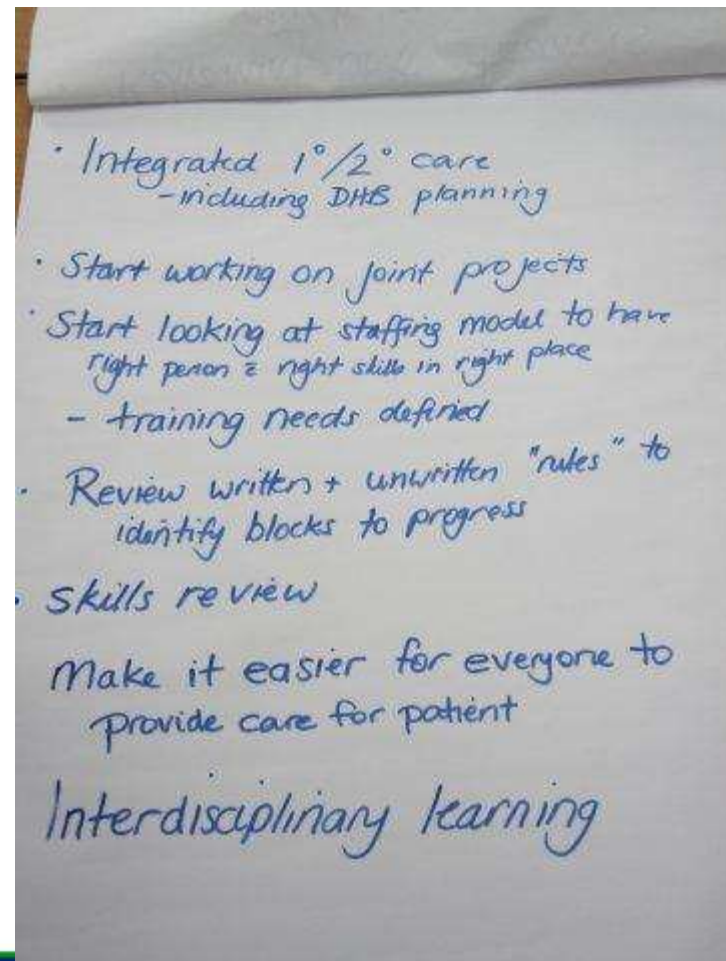 · Integrated 1°/2° care
- including DHB planning
· Start working on joint projects
· Start looking at staffing model to have
right person c̄ right skills in right place
- training needs defined
· Review written + unwritten "rules" to
identify blocks to progress
· Skills review
Make it easier for everyone to
provide care for patient
Interdisciplinary learning